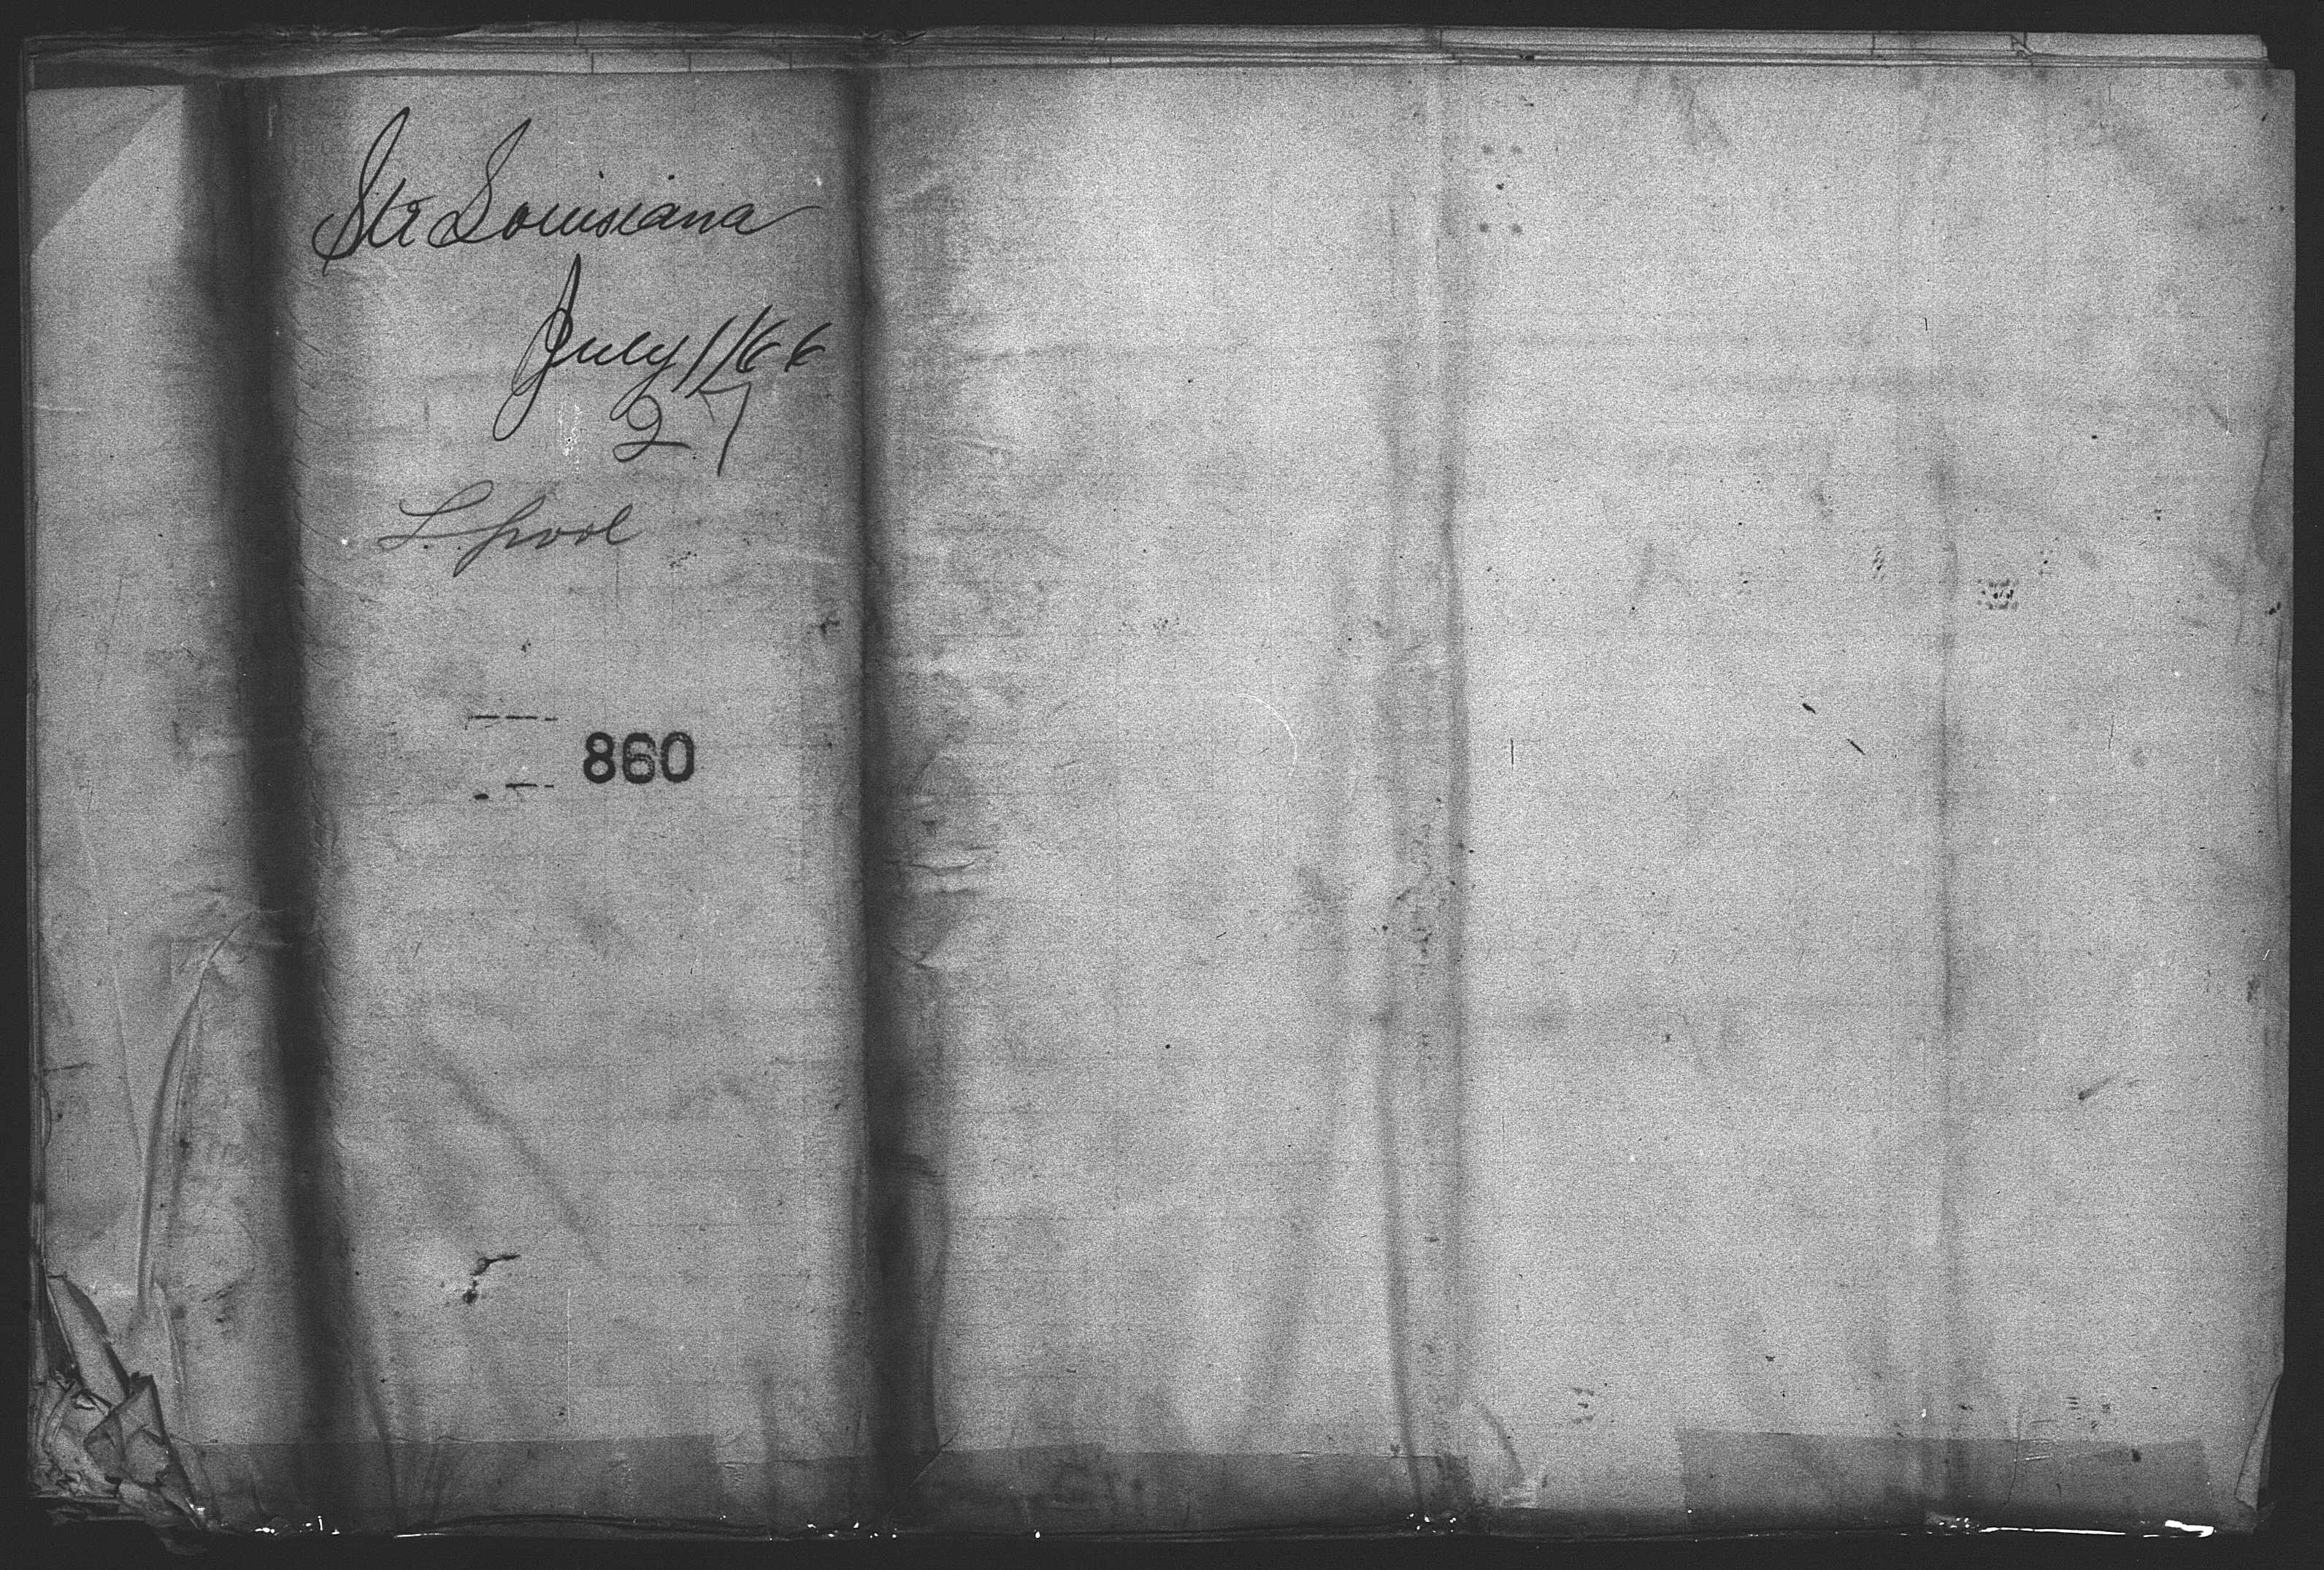 Str Louisiana
July 11/66
27
L.pool
860